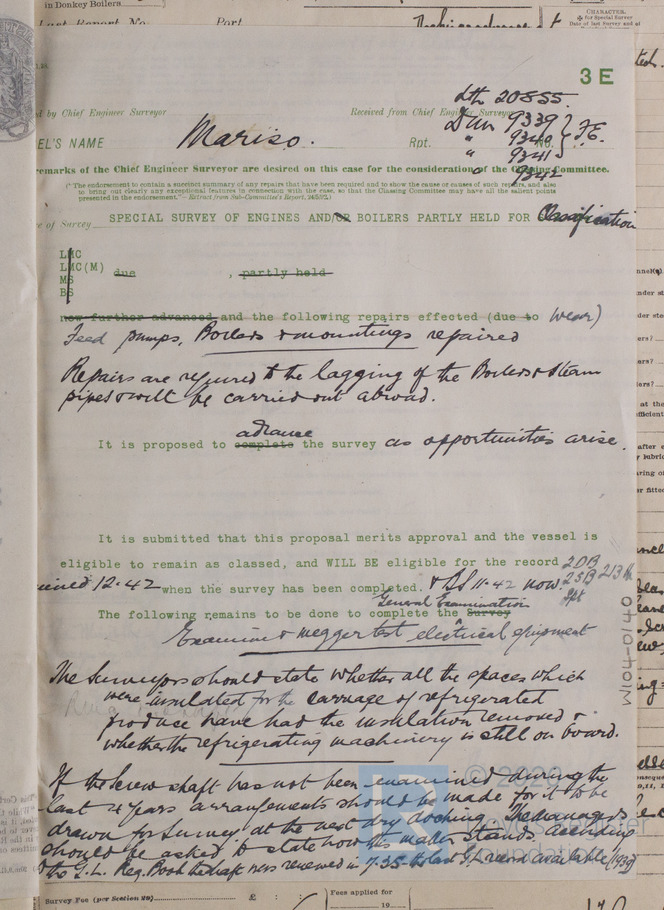 in Donkey Boilers
Last Report No. Port
CHARACTER.
for Special Survey
Date of last Survey and of
3 E
Lth 20855.
d by Chief Engineer Surveyor Received from Chief Engineer Surveyor
Dun 9339
EL'S NAME Mariso. Rpt. " 9340 No. F.E.
" 9341
" 9342
remarks of the Chief Engineer Surveyor are desired on this case for the consideration of the Classing Committee.
("The endorsement to contain a succinct summary of any repairs that have been required and to show the cause or causes of such repairs, and also
to bring out clearly any exceptional features in connection with the case, so that the Classing Committee may have all the salient points
presented in the endorsement."—Extract from Sub-Committee's Report,
e of Survey SPECIAL SURVEY OF ENGINES AND/OR BOILERS PARTLY HELD FOR Classification
LMC
LMC(M) due , partly held
MS
BS
now further advanced and the following repairs effected (due to wear)
Feed pumps, Boilers & mountings repaired
Repairs are required to the lagging of the Boilers & steam
pipes & will be carried out abroad.
advance
It is proposed to complete the survey as opportunities arise.
It is submitted that this proposal merits approval and the vessel is
eligible to remain as classed, and WILL BE eligible for the record 2DB
12.42 when the survey has been completed. & BS 11.42 now 2SB 213 lb
General Examination Spt
The following remains to be done to complete the Survey
Examine & megger test electrical equipment
The Surveyors should state whether all the spaces which
were insulated for the carriage of refrigerated
produce have had the insulation removed &
whether the refrigerating machinery is still on board.
If the screw shaft has not been examined during the
last 4 years arrangements should be made for it to be
drawn for survey at the next dry docking. The managers
should be asked to state how this matter stands. According
to the G.L. Reg. Book the shaft was renewed in 7.35 the last G.L. record available (1939)
W104-0140
© 2020
Lloyd's Register
Foundation
Survey Fee (per Section 29) £ : : Fees applied for
19